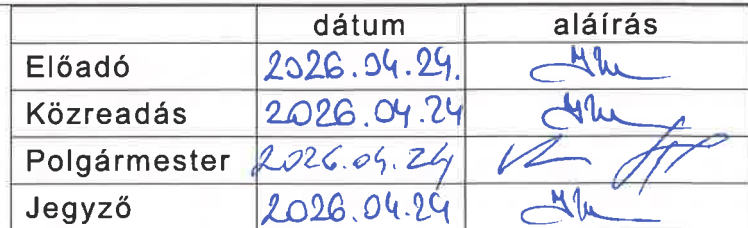 dátum aláírás
Előadó 2026.04.24.
Közreadás 2026.04.24
Polgármester 2026.04.24
Jegyző 2026.04.24